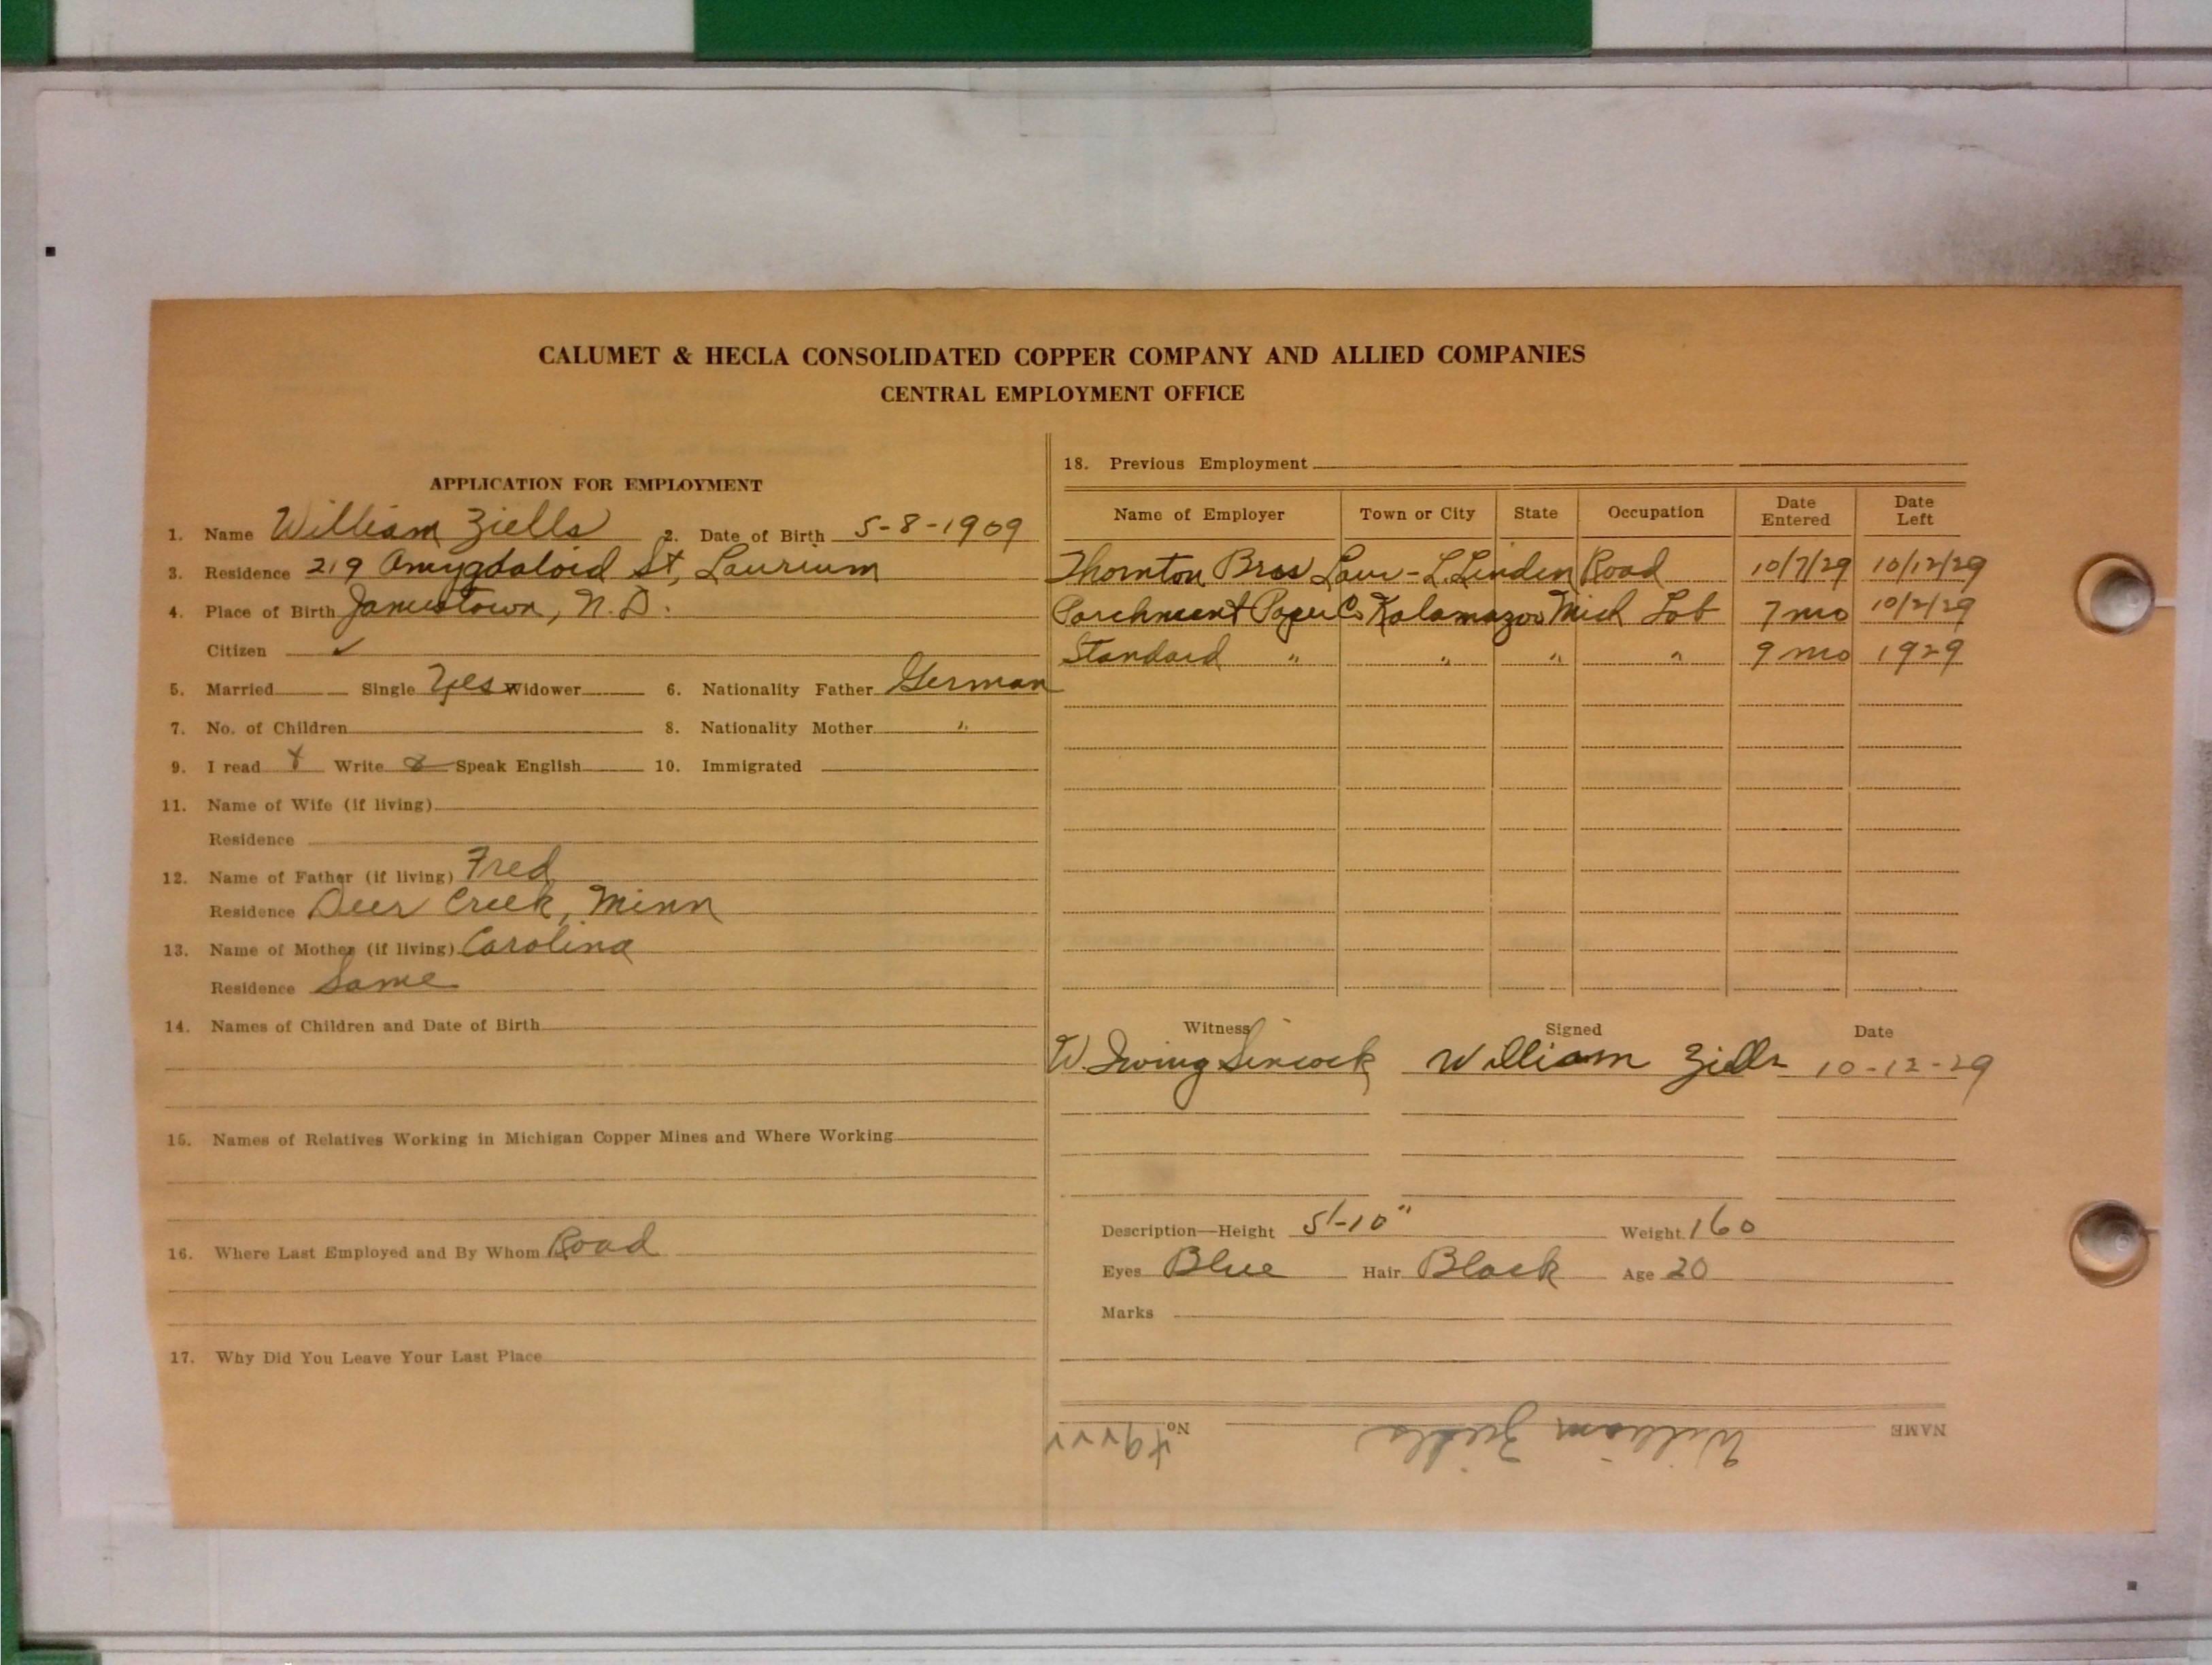 CALUMET & HECLA CONSOLIDATED COPPER COMPANY AND ALLIED COMPANIES
CENTRAL EMPLOYMENT OFFICE
APPLICATION FOR EMPLOYMENT
1. Name William Ziells 2. Date of Birth 5-8-1909
3. Residence 219 Amygdaloid St, Laurium
4. Place of Birth Jamestown, N.D.
Citizen ✓
5. Married Single Yes Widower 6. Nationality Father German
7. No. of Children 8. Nationality Mother "
9. I read & Write & Speak English 10. Immigrated
11. Name of Wife (if living)
Residence
12. Name of Father (if living) Fred
Residence Deer Creek, Minn
13. Name of Mother (if living) Carolina
Residence Same
14. Names of Children and Date of Birth
15. Names of Relatives Working in Michigan Copper Mines and Where Working
16. Where Last Employed and By Whom Road
17. Why Did You Leave Your Last Place
18. Previous Employment
Name of Employer Town or City State Occupation Date Entered Date Left
Thornton Bros Laur-L.Linden Road 10/7/29 10/12/29
Parchment Paper Co Kalamazoo Mich Lab 7 mo 10/2/29
Standard " " " " 9 mo 1929
Witness Signed Date
W. Irving Sincock William Ziells 10-12-29
Description—Height 5'-10" Weight 160
Eyes Blue Hair Black Age 20
Marks
NAME William Ziells No.